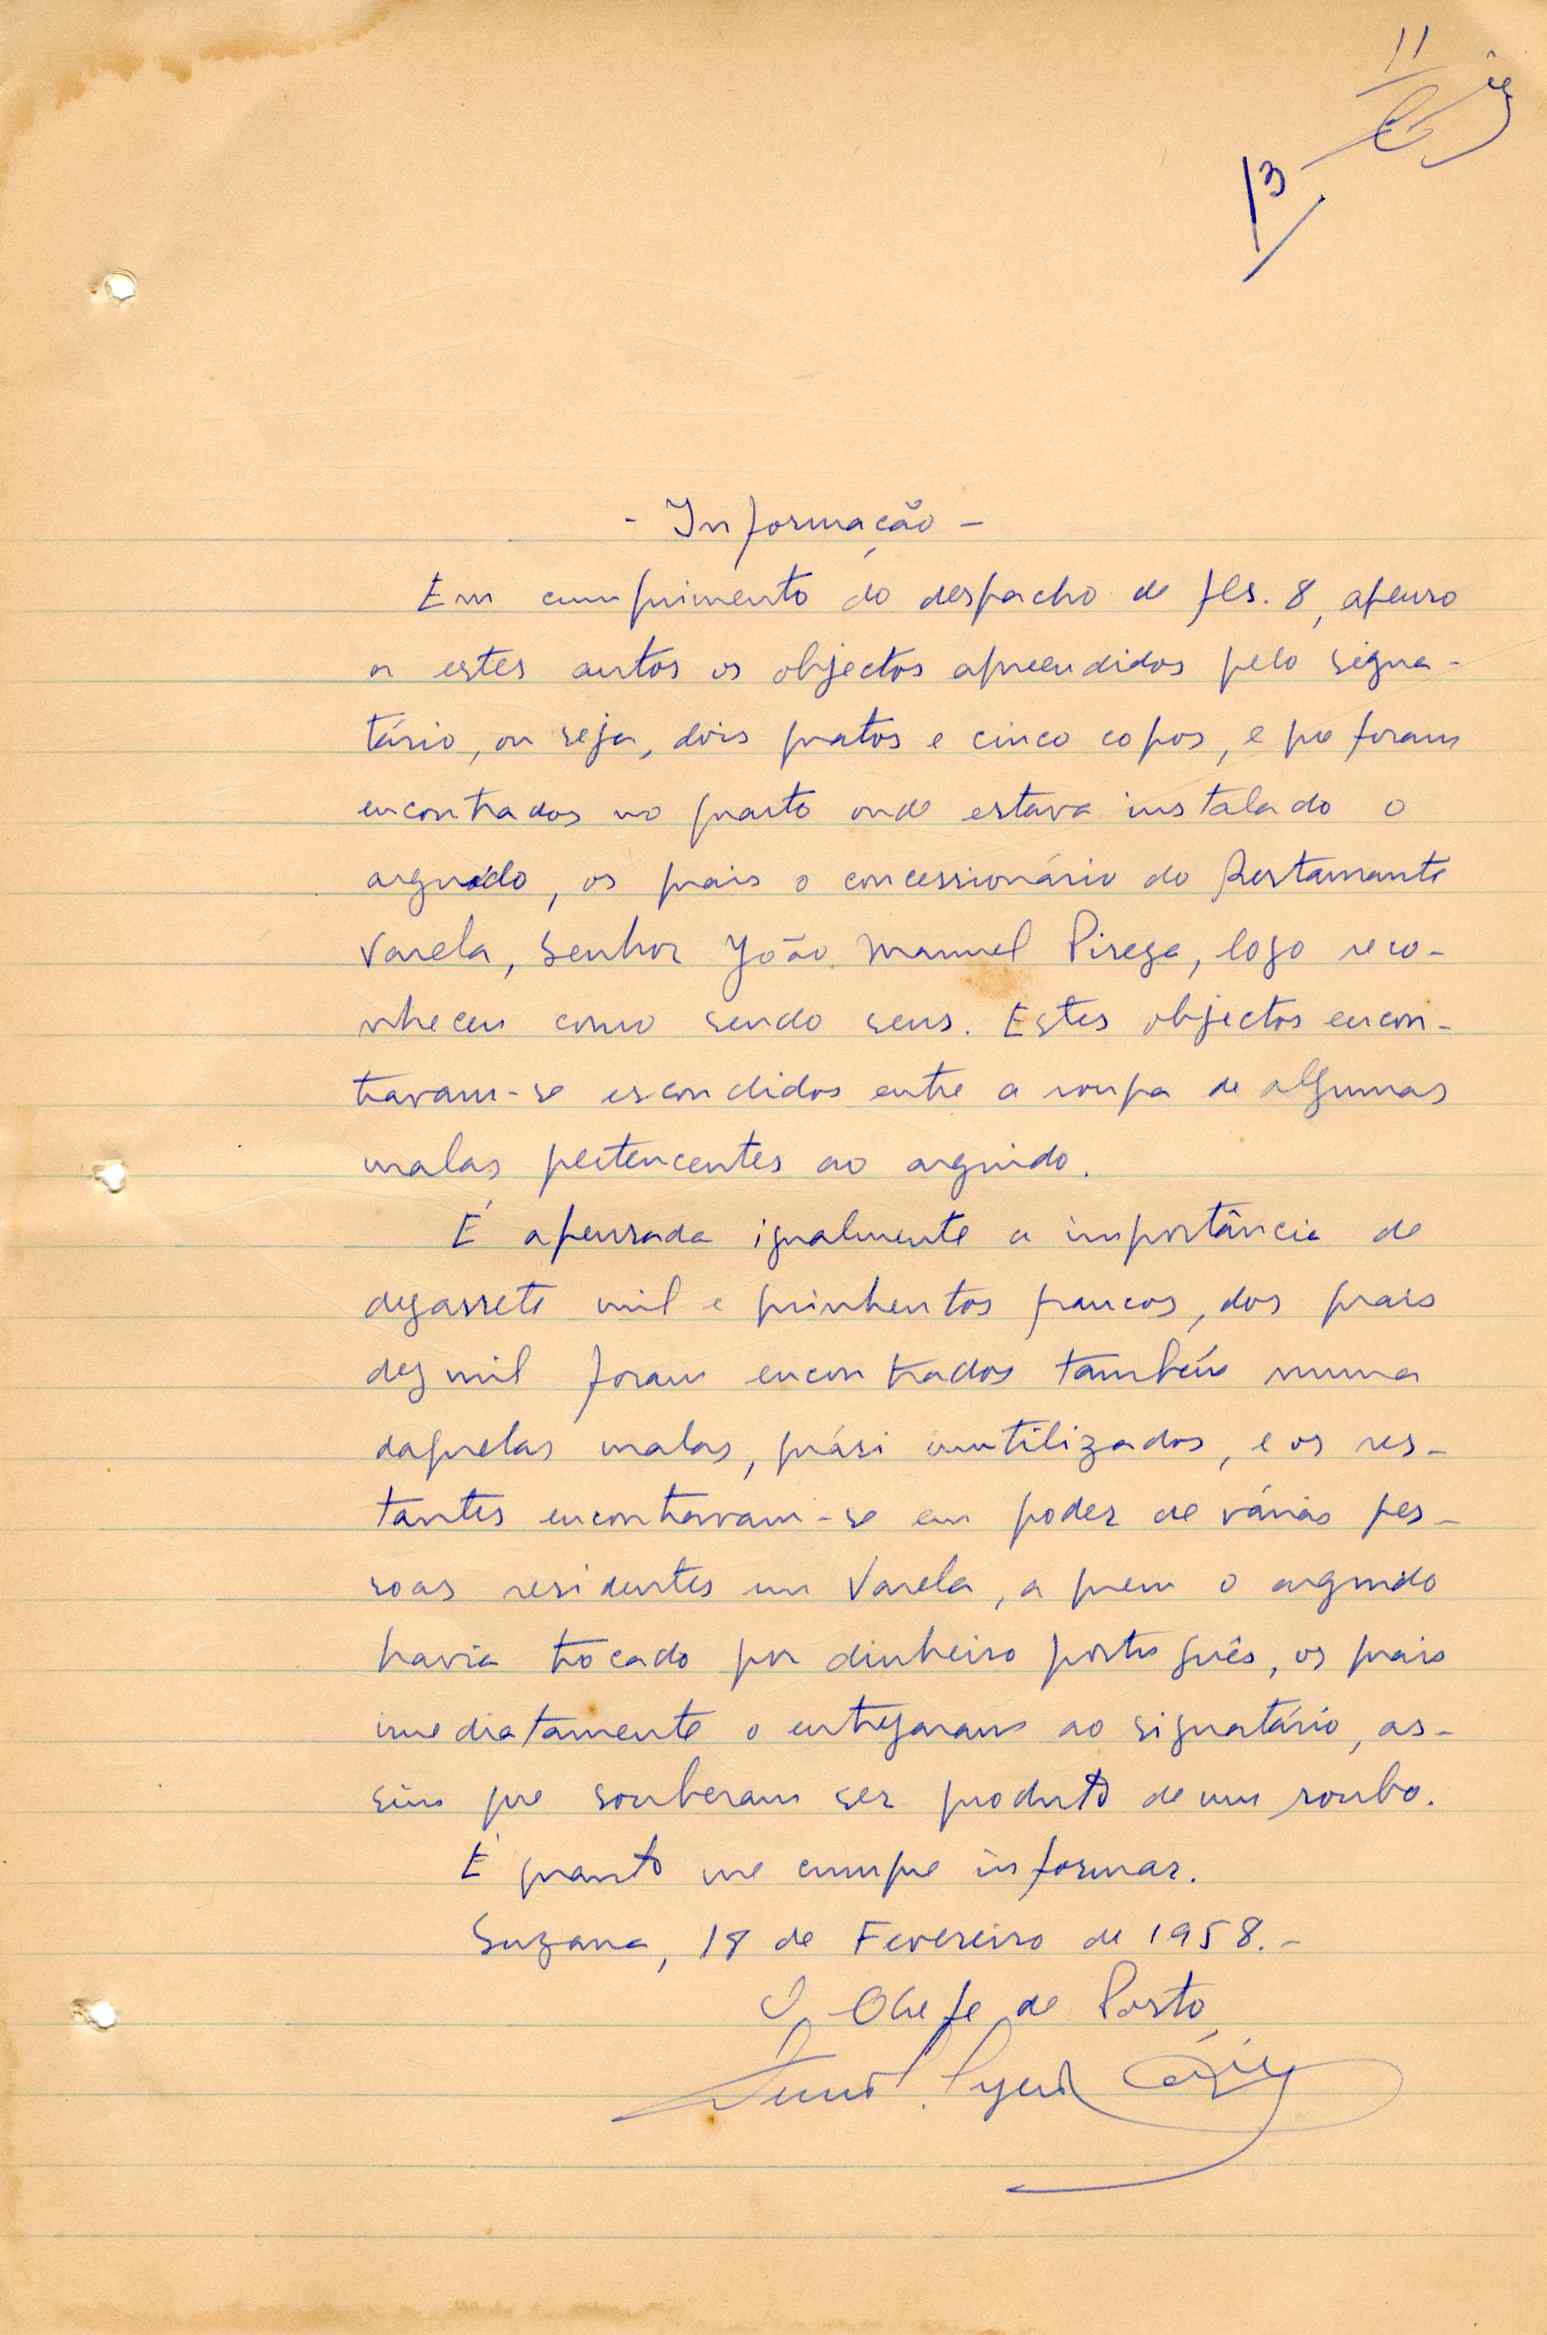 11
13
- Informação -
Em cumprimento do despacho de fls. 8, apenso
a estes autos os objectos apreendidos pelo signa-
tário, ou seja, dois pratos e cinco copos, e que foram
encontrados no quarto onde estava instalado o
arguido, os quais o concessionário do Restaurante
Varela, Senhor João Manuel Pireza, logo reco-
nheceu como sendo seus. Estes objectos encon-
travam-se escondidos entre a roupa de algumas
malas pertencentes ao arguido.
É apensada igualmente a importância de
dezassete mil e quinhentos francos, dos quais
dez mil foram encontrados também numa
daquelas malas, quási inutilizados, e os res-
tantes encontravam-se em poder de várias pes-
soas residentes em Varela, a quem o arguido
havia trocado por dinheiro português, os quais
imediatamente o entregaram ao signatário, as-
sim que souberam ser produto de um roubo.
É quanto me cumpre informar.
Suzana, 18 de Fevereiro de 1958.-
O Chefe de Posto,